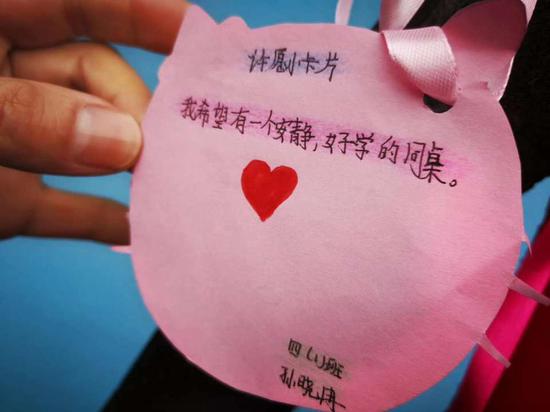 许愿小卡片
我希望有一个安静,好学的同桌。
四(1)班
孙晓博